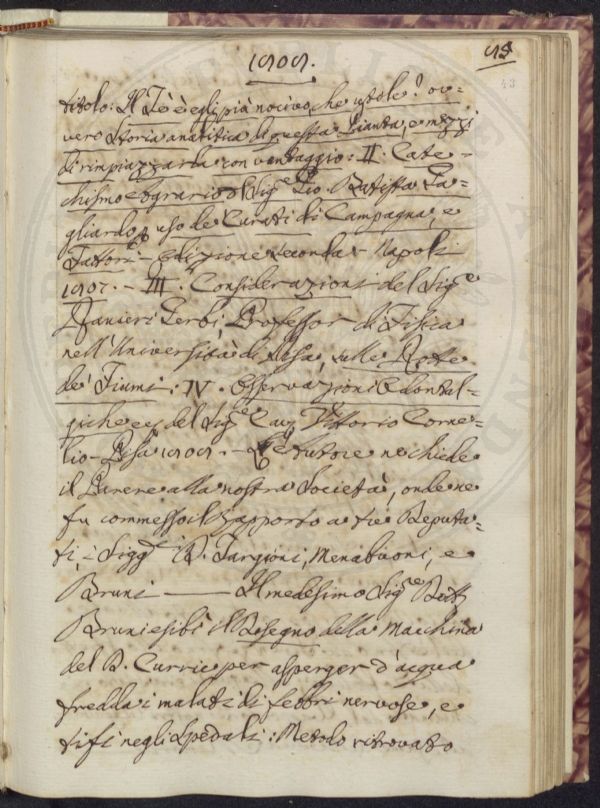 1809.
titolo: Il Tè è egli più nocivo, che utile? ov=
vero Storia analitica di questa Pianta, e mezzi
di rimpiazzarla con vantaggio: II. Cate=
chismo Agrario del Sig.e Gio. Batista Ga=
gliardo p uso de' Curati di Campagna, e
Fattori - Edizione seconda - Napoli
1807. - III. Considerazioni del Sig.e
Ranieri Gerbi, Professor di Fisica
nell'Università di Pisa, sulle Rotte
de' Fiumi: IV. Osservazioni Odontal=
giche del Sig.e Cav. Vittorio Corne=
lio - Pisa 1809. - L'Autore ne chiede
il Parere alla nostra Società, onde ne
fu commesso il rapporto a tre Deputa=
ti, i Sigg.i D. Targioni, Menabuoni, e
Bruni — Il medesimo Sig.e Dott.
Bruni esibì il Disegno della Macchina
del D. Currie per asperger d'acqua
fredda i malati di febbri nervose, e
tifi negli Spedali: Metodo ritrovato